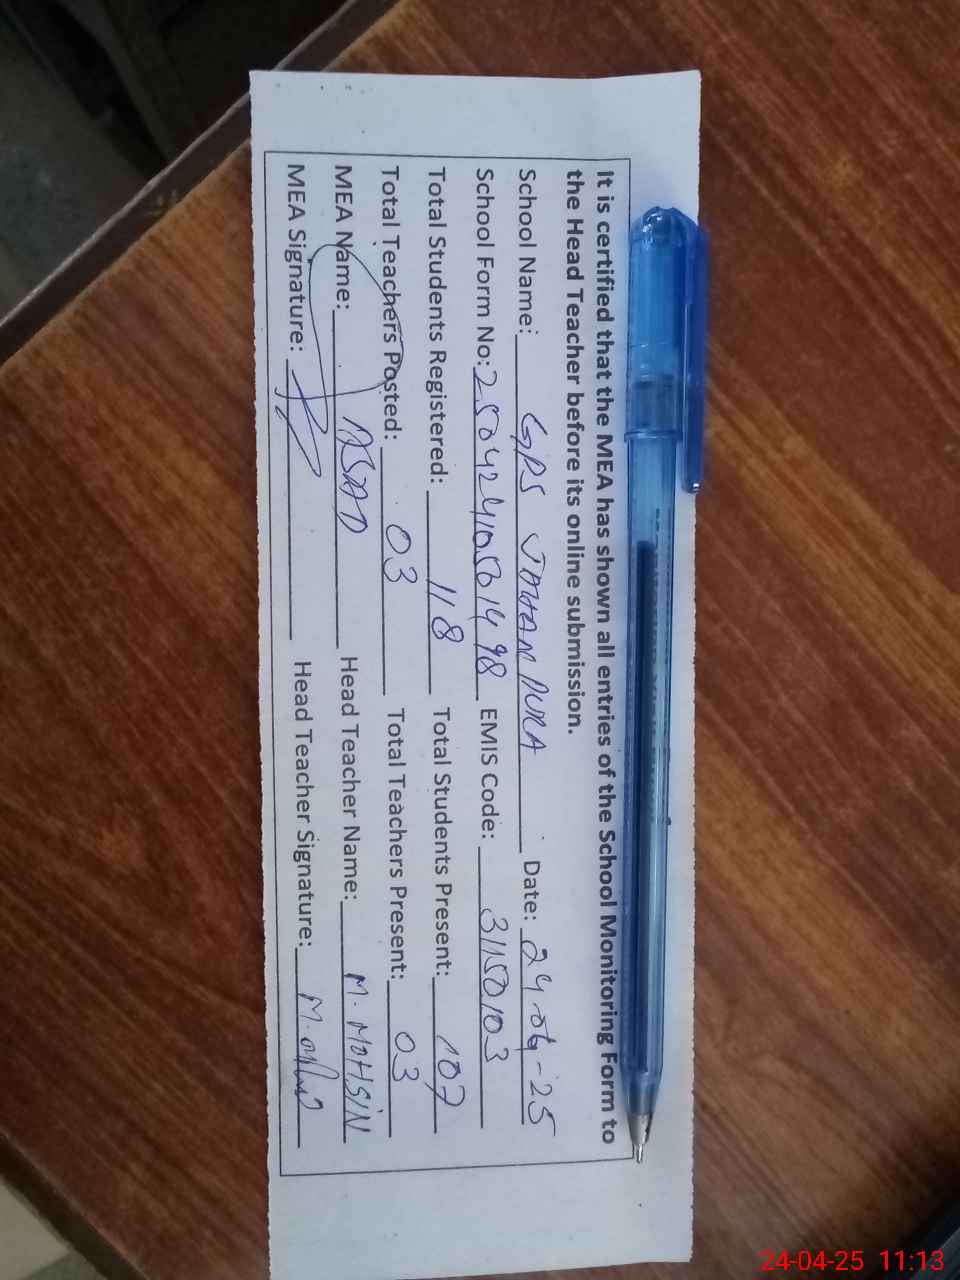 It is certified that the MEA has shown all entries of the School Monitoring Form to
the Head Teacher before its online submission.
School Name: GPS JAHAN PURA Date: 24-04-25
School Form No: EMIS Code: 31150103
Total Students Registered: 118 Total Students Present: 107
Total Teachers Posted: 03 Total Teachers Present: 03
MEA Name: ASAD Head Teacher Name: M. MOHSIN
MEA Signature: Head Teacher Signature:
24-04-25 11:13